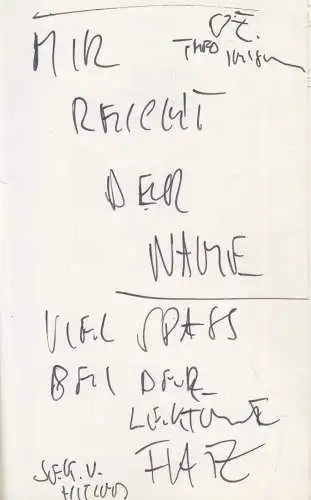 MIR
REICHT
DER
NAME
VIEL SPASS
BEI DER
LEKTÜRE